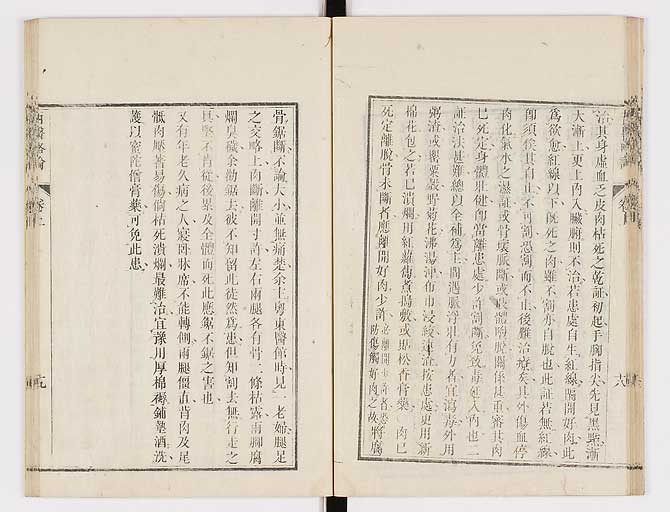 治其身虛血之皮肉枯死之乾証初起手腳指尖先見黑點漸
大漸上更上內入臟腑則不治若患處自生紅線開好肉此
為欲愈紅線以下旣死之肉雖不割亦自脫也此証若無紅線
卽須俟其自止不可割恐割而不止後難治療矣其外傷血停
肉化氣水之濕証或骨壞脈斷或肢體脫關係甚重審其肉
已死定身體壯健卽當離患處少許割斷免致毒延入內也二
証治法甚難總以全補為主間遇脈浮壯有力者宜瀉毒外用
粥渣或罌粟殼野菊花沸湯沖布巾浸絞連渣按患處更用新
棉花包之若已潰爛用紅蘿蔔煮搗敷或貼松香膏藥 肉已
死定離脫骨未斷者應離開好肉少許 必離開少許者恐防傷觸好肉之故 將腐
骨鋸斷不論大小並無痛楚余主粵東醫館時見一老婦腿足
之交略上肉斷離開寸許左右兩腿各有骨二條枯露兩腳腐
爛臭穢余勸鋸去彼不知留此徒然為患但知割去無行走之
具堅不肯從後累及全體而死此應鋸不鋸之害也
又有年老久病之人寢臥牀席不能轉側兩腿僵直背肉及尾
骶肉壓著易傷枯死潰爛最難治宜豫用厚棉褥鋪墊酒洗
後以蜜陀僧膏藥可免此患
西醫略論 卷上